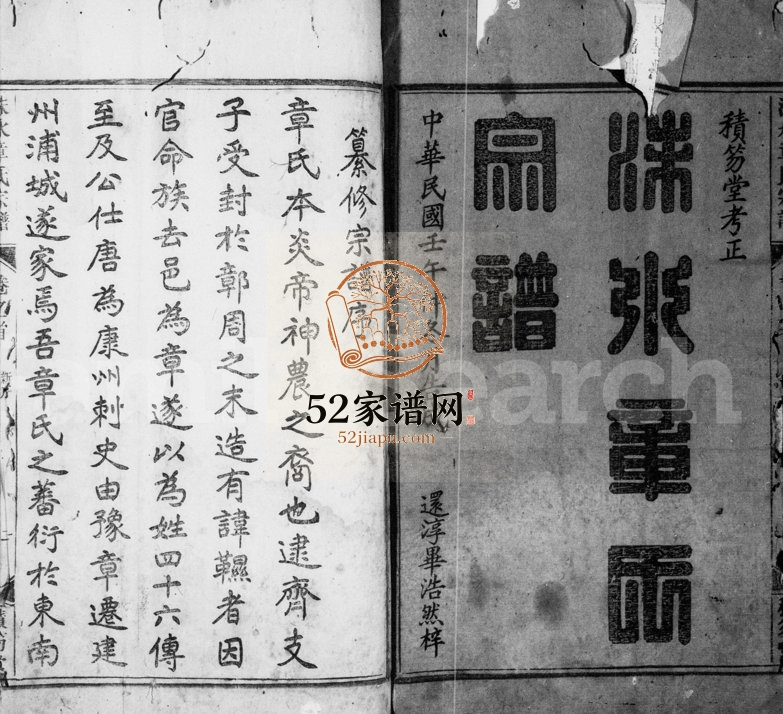 積笏堂考正
沬水章氏
宗譜
中華民國壬午
還淳畢浩然梓
纂修宗譜序
章氏本炎帝神農之裔也逮齊支
子受封於鄣周之末造有諱韅者因
官命族去邑為章遂以為姓四十六傳
至及公仕唐為康州刺史由豫章遷建
州浦城遂家焉吾章氏之蕃衍於東南
52家谱网
52jiapu.com